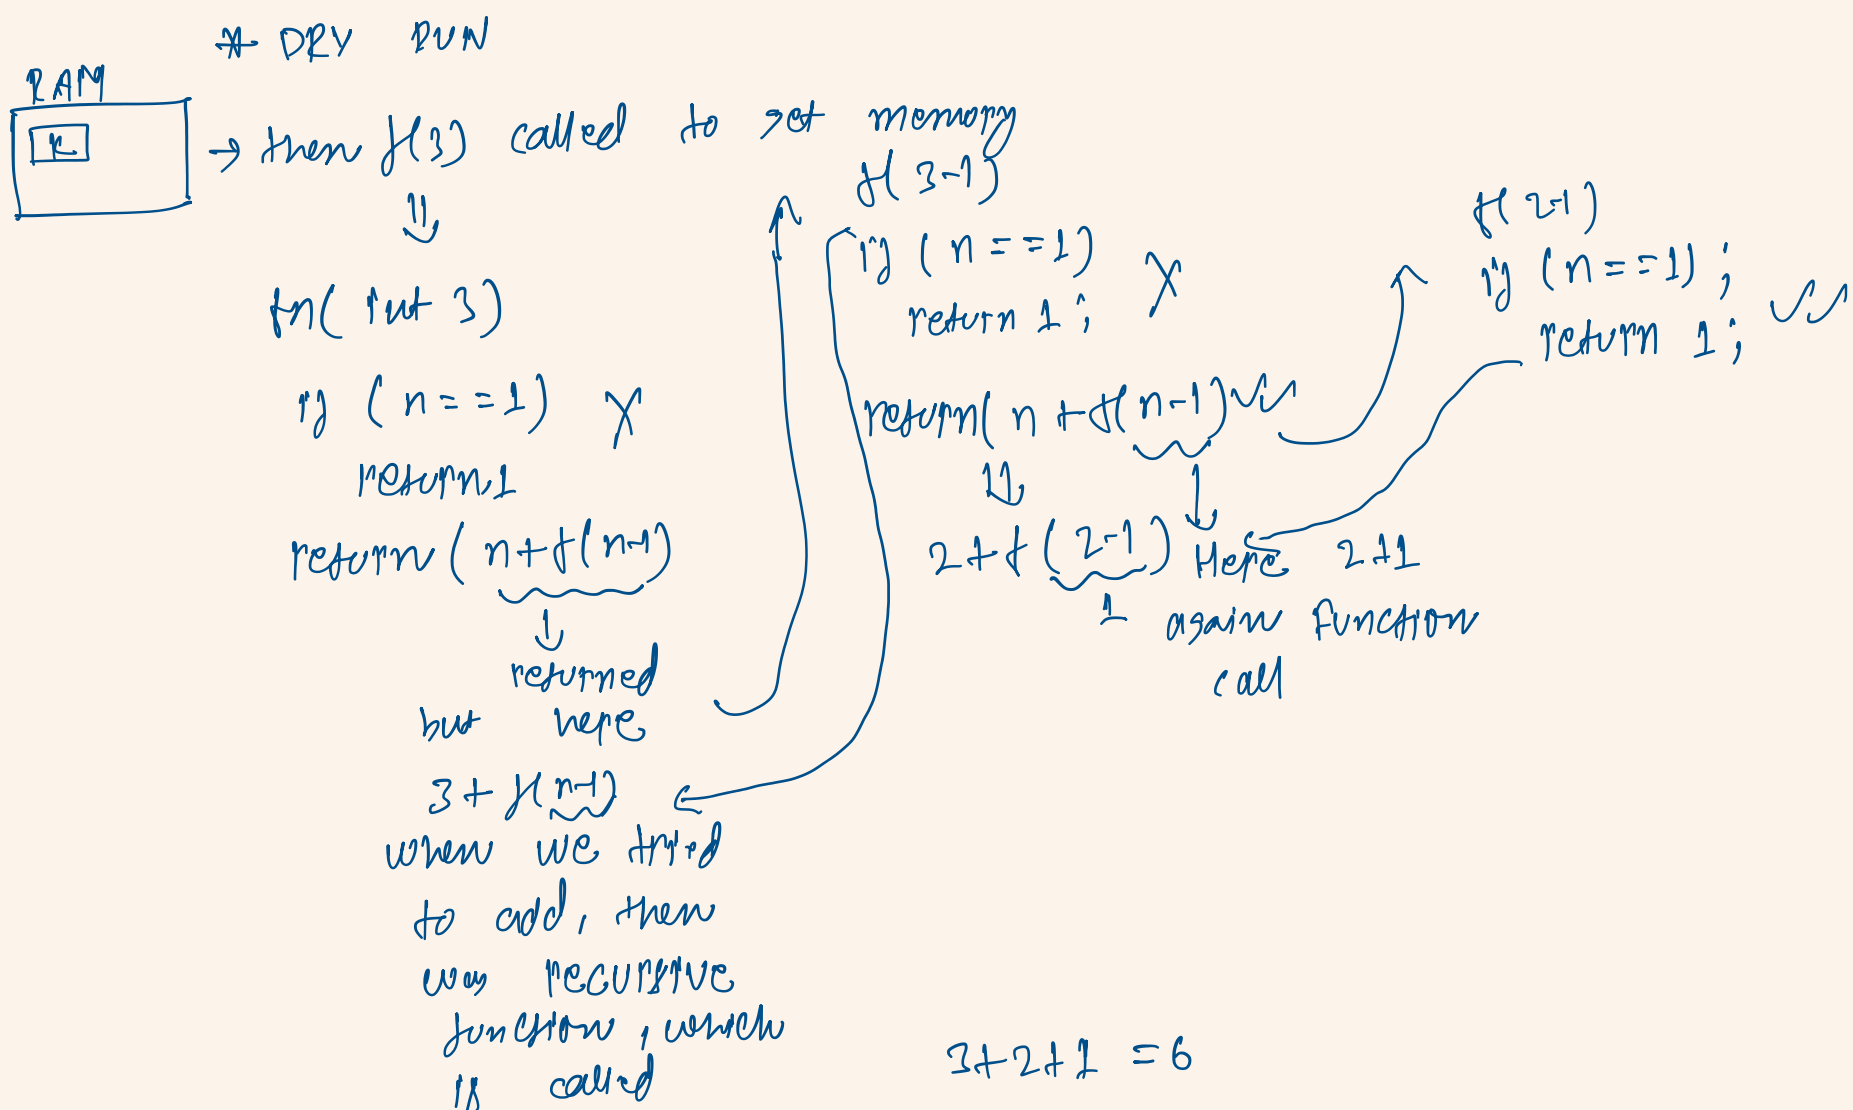 * DRY RUN
RAM
K
→ then f(3) called to set memory
⇓
fn( int 3)
if (n==1) X
return 1
return (n+f(n-1)
↓
returned
but here
3+ f(n-1)
when we tried
to add, then
was recursive
function, which
is called
f(3-1)
if (n==1) X
return 1;
return( n +f(n-1)
⇓ ↓
2+f(2-1) Here 2+1
1 again function
call
f(2-1)
if (n==1);
return 1;
3+2+1 =6